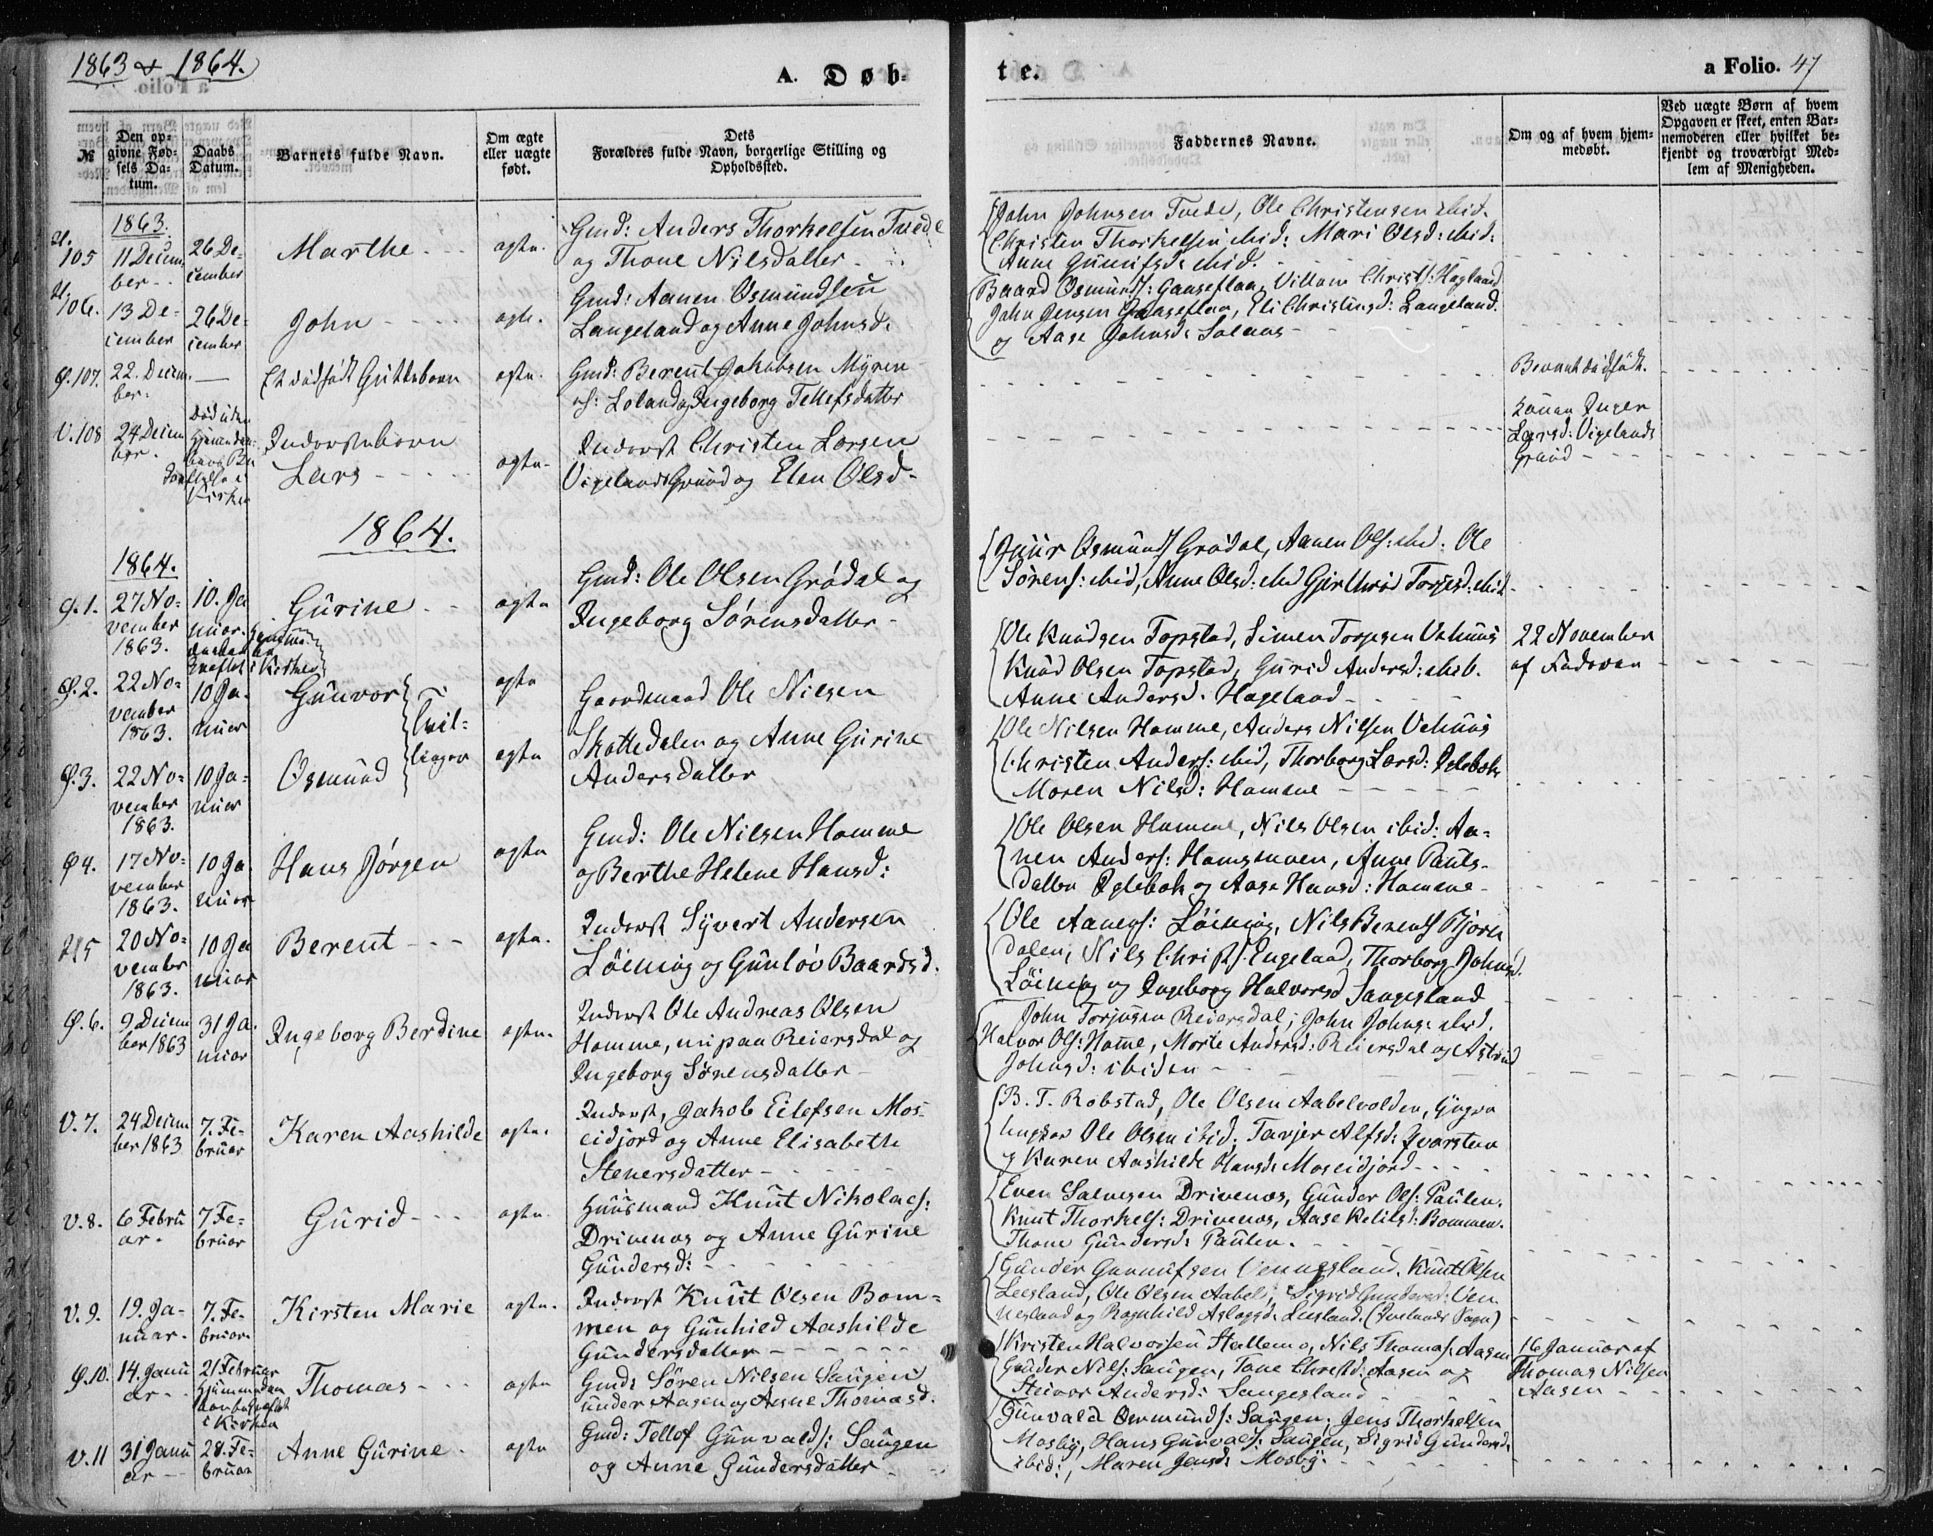 1863 & 1864.
A. Døb-
te.
a Folio. 47
№
Den op-
givne Fød-
sels Da-
tum.
Daabs
Datum.
Barnets fulde Navn.
Om ægte
eller uægte
født.
Dets
Forældres fulde Navn, borgerlige Stilling og
Opholdssted.
Faddernes Navne.
Om og af hvem hjem-
medøbt.
Ved uægte Børn af hvem
Opgaven er skeet, enten Bar-
nemoderen eller hvilket be-
kjendt og troværdigt Med-
lem af Menigheden.
1863.
105
11 Decem
ber
26 De-
cember
Marthe
ægte.
Gmd: Anders Thorkelsen Tvede
og Thone Nilsdatter
John Johnsen Tvede, Ole Christensen ibid.
Christen Thorkelsen ibid: Mari Olsd: ibid:
Anne Gunnufsd: ibid.
106.
13 De-
cember
26 De-
cember
John
ægte.
Gmd: Aanen Osmundsen
Langeland og Anne Johnsd.
Baard Osmunds: Gaaseflaa, Villum Christs: Hagland
John Jensen Gaaseflaa, Eli Christensd: Langeland.
og Aase Johnsd: Solaas
Ø. 107.
22. Decem
ber.
Et dødfødt Guttebarn
ægte.
Gmd: Berent Jakobsen Myren
af: Loland og Ingeborg Tellefsdatter
V. 108
24 Decem
ber.
Død uden
Kirken
Inderstebarn
Lars
ægte
Inderst Christen Larsen
Vigelands Grund og Elen Olsd
Konen Inger
Larsd: Vigelands
Grund
1864.
1864.
Ø. 1.
27 No-
vember
1863.
10. Ja
nuar.
Gurine
ægte
Gmd: Ole Olsen Grødal og
Ingeborg Sørensdatter
Osmunds Grødal, Aanen Ols: ibid: Ole
Sørens: ibid, Anne Olsd: ibid Gjerthrud Torjesd: ibid
Ø. 2.
22 No-
vember
1863.
10 Ja-
nuar
Gunvor
Tvil-
linger
ægte
Gaardmand Ole Nilsen
Skottedalen og Anne Gurine
Andersdatter
Ole Knudsen Topstad, Simen Torjesen Vehuus
Knud Olsen Topstad, Gurid Andersd: ibid.
Anne Andersd: Hageland
22 November
af Faderen
Ø. 3.
22 No-
vember
1863.
10 Ja-
nuar
Osmund
ægte
Ole Nilsen Homme, Anders Nilsen Vehuus
Christen Anders: ibid, Thorborg Larsd: Iglebæk
Maren Nilsd: Homme
Ø 4.
17 No-
vember
1863.
10 Ja.
nuar
Hans Jørgen
ægte
Gmd: Ole Nilsen Homme
og Berthe Helene Hansd:
Ole Olsen Homme, Nils Olsen ibid: Aa-
nen Anders: Homsmoen, Anne Pauls-
datter Iglebæk og Aase Hansd: Homme
5
20 No-
vember
1863.
10 Ja
nuar
Berent
ægte.
Inderst Syvert Andersen
Løining og Gunløv Baardsd.
Ole Aanens: Løining, Nils Berents Bjorn
dalen, Nils Chrsts: Engeland, Thorborg Johnsd.
Løining og Ingeborg Halvorsd Sangesland
Ø. 6.
9 Decem
ber 1863
31 Ja.
nuar
Ingeborg Berdine
ægte.
Inderst Ole Andreas Olsen
Homme, nu paa Reiersdal og
Ingeborg Sørensdatter
John Torjusen Reiersdal, John Johns: ibid.
Halvor Ols: Homme, Marte Andersd: Reiersdal og Astrid
Johnsd: ibidem
V. 7.
24 Decem
ber 1863
7. Fe-
bruar
Karen Aashilde
ægte.
Inderst, Jakob Eilefsen Mos-
eidjord og Anne Elisabeth
Stenersdatter
B. T. Robstad, Ole Olsen Aabelvolden, Ungkar
Ole Olsen ibid. Tarjer Alfsd: Kvarsten
og Karen Aashilde Hansd: Moseidjord
V. 8.
6 Febru
ar.
7 Fe-
bruar
Gurid
ægte.
Huusmand Knut Nikolaes:
Drivenæs og Anne Gurine
Gundersd:
Even Salvesen Drivenæs, Gunder Ols: Paulen.
Knut Thorkels: Drivenæs, Aase Ketilsd: Bommen.
Thone Gundersd: Paulen.
V. 9.
19. Ja-
nuar.
7. Fe-
bruar.
Kirsten Marie
ægte.
Inderst Knut Olsen Bom-
men og Gunhild Aashilde
Gundersdatter
Gunder Gunnufsen Vennesland, Knut Olsen
Leesland, Ole Olsen Aabel, Sigrid Gundersd: Ven
nesland og Ragnhild Aslagsd: Leesland.
Ø. 10.
14. Janu
ar
21 Februar
i Kirken
Thomas
ægte
Gmd: Søren Nilsen Saugen
under Aasen og Anne Thomasd.
Kristen Halvorsen Stallemo, Nils Thomas: Aasen
Gunder Nils: Saugen, Tone Christd: Aasen og
Steinor Andersd: Sangesland
16 Januar af
Thomas Nilsen
Aasen
V. 11
31 Janu
ar
28. Fe-
bruar
Anne Gurine
ægte
Gmd: Tellef Gunvalds: Saugen
og Anne Gundersdatter
Gunvald Osmunds: Saugen, Jens Thorkelsen
Mosby, Hans Gunvalds: Saugen, Sigrid Gundersd.
ibid:, Maren Jensd: Mosby.